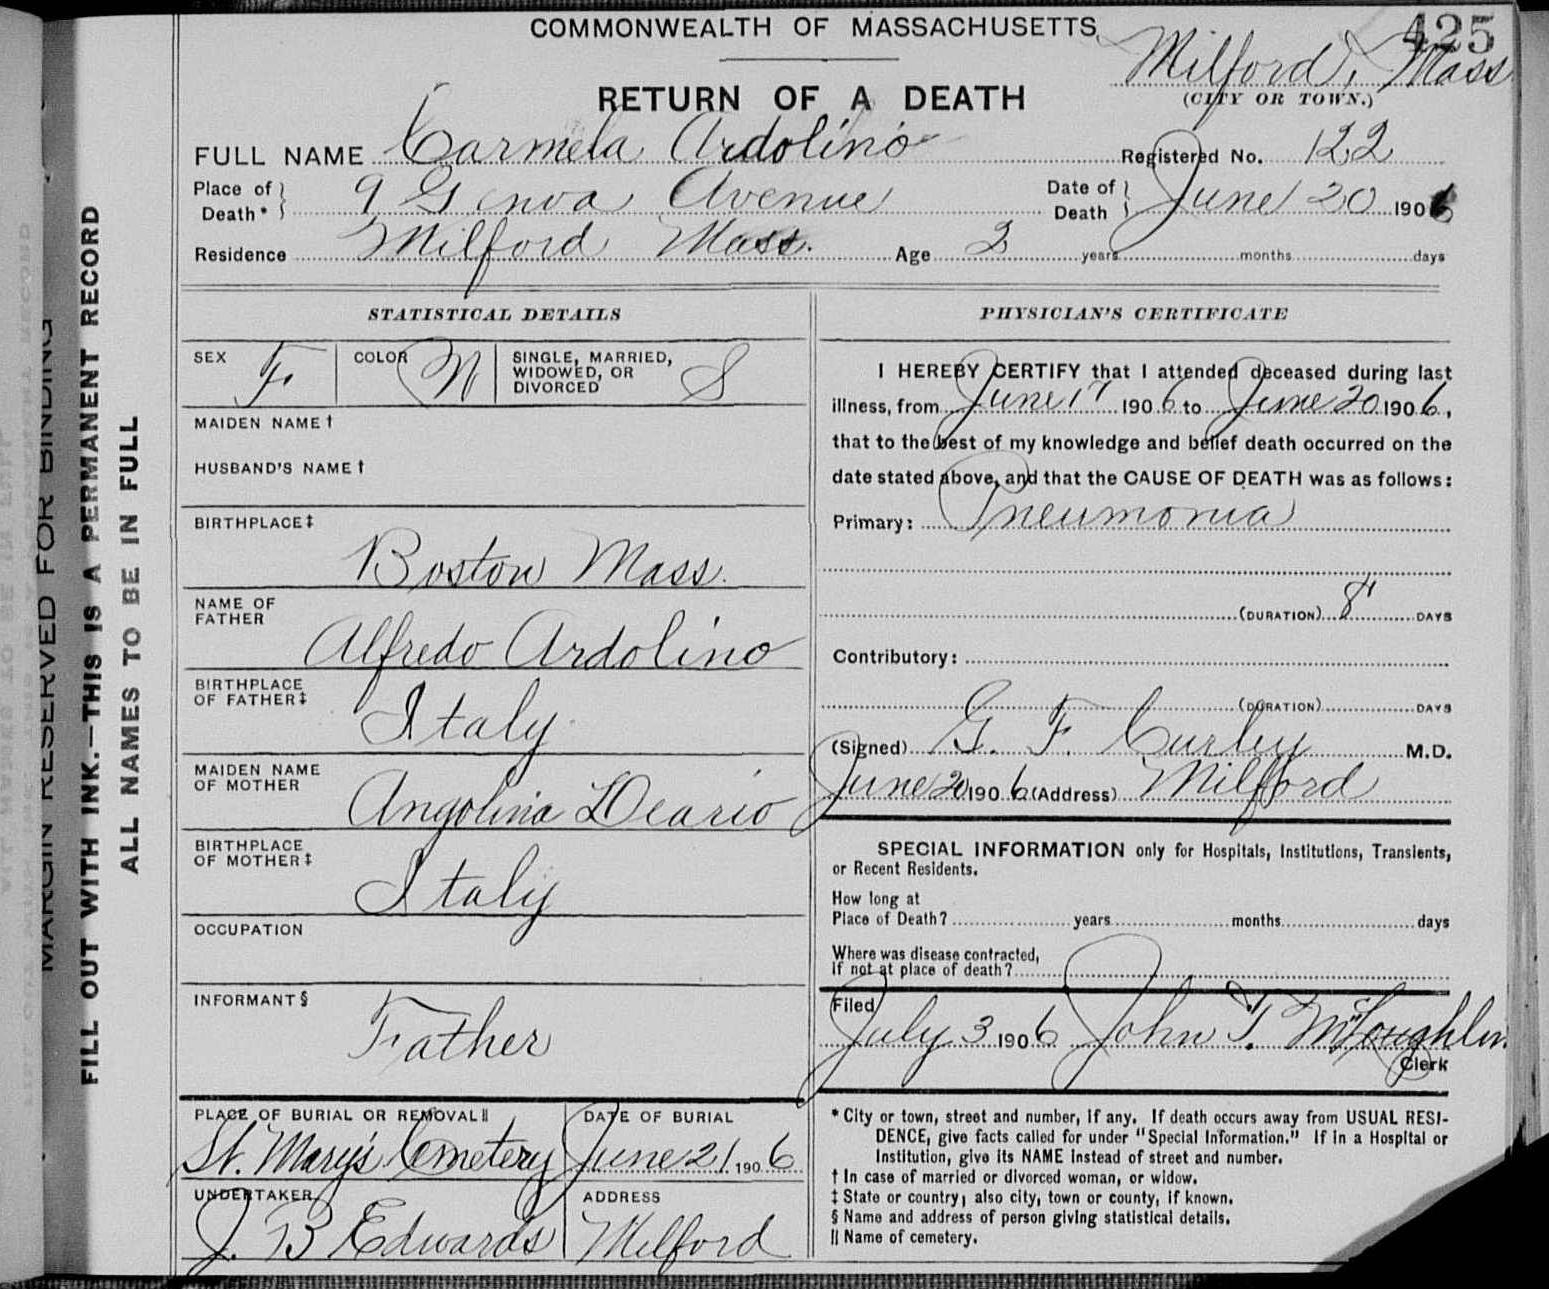 425
COMMONWEALTH OF MASSACHUSETTS
Milford, Mass
(CITY OR TOWN.)
RETURN OF A DEATH
FULL NAME Carmela Ardolino Registered No. 122
Place of Death* 9 Genoa Avenue Date of Death June 20 1906
Residence Milford Mass. Age 2 years months days
MARGIN RESERVED FOR BINDING
FILL OUT WITH INK.—THIS IS A PERMANENT RECORD
ALL NAMES TO BE IN FULL
STATISTICAL DETAILS
SEX F COLOR W SINGLE, MARRIED, WIDOWED, OR DIVORCED S
MAIDEN NAME †
HUSBAND'S NAME †
BIRTHPLACE ‡
Boston Mass.
NAME OF FATHER
Alfredo Ardolino
BIRTHPLACE OF FATHER ‡
Italy
MAIDEN NAME OF MOTHER
Angolina Deario
BIRTHPLACE OF MOTHER ‡
Italy
OCCUPATION
INFORMANT §
Father
PLACE OF BURIAL OR REMOVAL ||
St. Mary's Cemetery
DATE OF BURIAL
June 21 1906
UNDERTAKER
J. B Edwards
ADDRESS
Milford
PHYSICIAN'S CERTIFICATE
I HEREBY CERTIFY that I attended deceased during last
illness, from June 17 1906 to June 20 1906,
that to the best of my knowledge and belief death occurred on the
date stated above, and that the CAUSE OF DEATH was as follows:
Primary: Pneumonia
(DURATION) 8 DAYS
Contributory:
(DURATION) DAYS
(Signed) G. F. Curley M.D.
June 20 1906 (Address) Milford
SPECIAL INFORMATION only for Hospitals, Institutions, Transients,
or Recent Residents.
How long at
Place of Death? years months days
Where was disease contracted,
If not at place of death?
Filed
July 3 1906 John T. McLoughlin
Clerk
* City or town, street and number, if any. If death occurs away from USUAL RESI-
DENCE, give facts called for under "Special Information." If in a Hospital or
Institution, give its NAME instead of street and number.
† In case of married or divorced woman, or widow.
‡ State or country; also city, town or county, if known.
§ Name and address of person giving statistical details.
|| Name of cemetery.